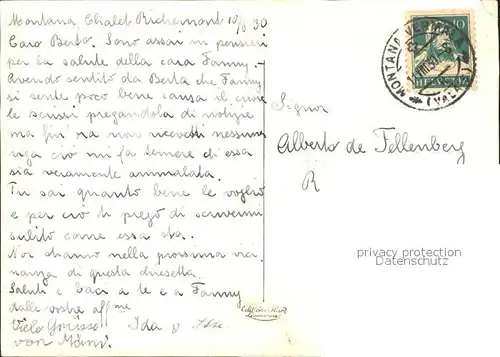 Montana, Chalet Richemont 10/8 30
Caro Berto. Sono assai in pensieri
per la salute della cara Fanny.
Avendo sentito da Berta che Fanny
si sente poco bene causa il cuore
le scrissi pregandola di notizie
ma fin ora non ricevetti nessuna
riga ciò mi fa temere di essa
sia veramente ammalata.
Tu sai quanto bene le voglio
e per ciò ti prego di scrivermi
subito come essa sta.
Noi stanno nella prossima vici
nanza di questa chiesetta.
Saluti e baci a te e a Fanny
dalle vostre affme
Viele Grüsse Ida v
von
Signor
Alberto de Fellenberg
R
MONTANA
HELVETIA
10
privacy protection
Datenschutz